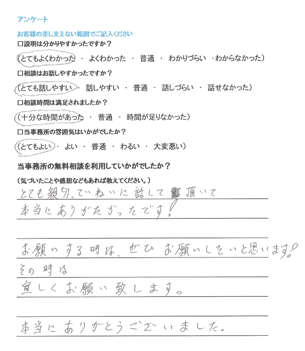 アンケート
お客様の差し支えない範囲でご記入ください
□説明は分かりやすかったですか？
（とてもよくわかった ・ よくわかった ・ 普通 ・ わかりづらい ・わからなかった）
□相談はお話しやすかったですか？
（とても話しやすい ・ 話しやすい ・ 普通 ・ 話しづらい ・ 話せなかった）
□相談時間は満足されましたか？
（十分な時間があった ・ 普通 ・ 時間が足りなかった）
□当事務所の雰囲気はいかがでしたか？
（とてもよい ・ よい ・ 普通 ・ わるい ・ 大変悪い）
当事務所の無料相談を利用していかがでしたか？
（気づいたことや感想などもあれば教えてください。）
とても親切、ていねいに話して頂いて
本当にありがたかったです！
お願いする時は、ぜひ お願いしたいと思います！
その時は
宜しくお願い致します。
本当にありがとうございました。